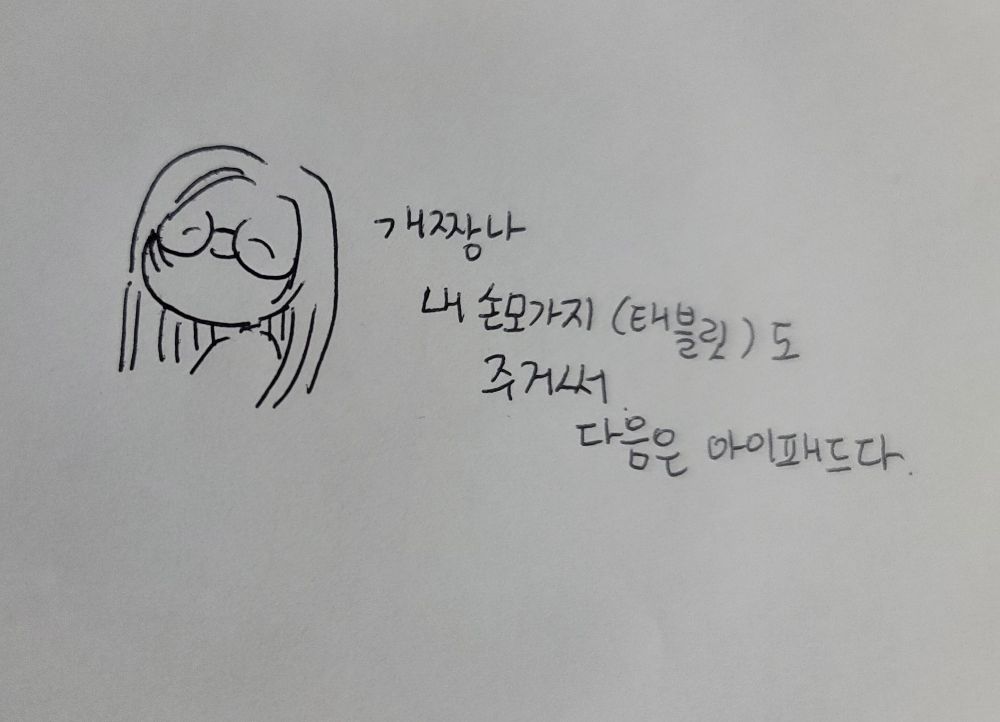 개짱나
내 손모가지 (태블릿)도
주거써
다음은 아이패드다.